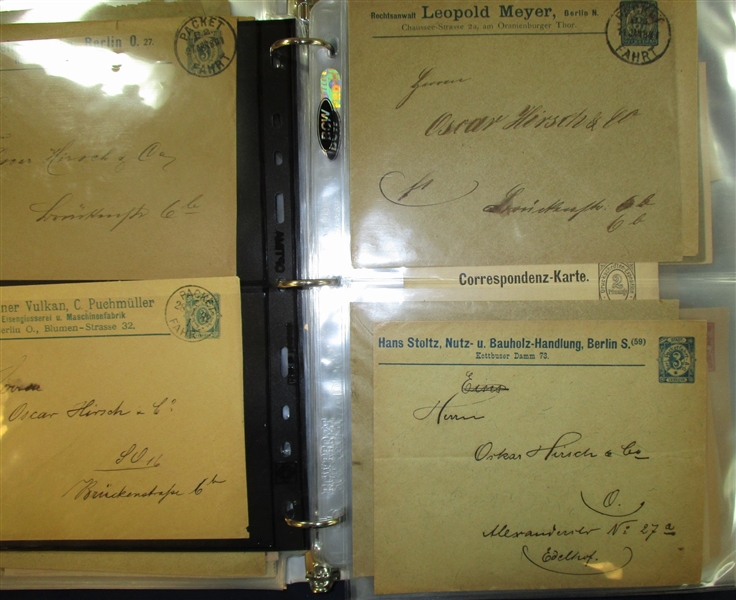 Berlin O. 27.
PACKET
FAHRT
Hirsch & Co
Brückenstr. 6b
ner Vulkan, C. Puchmüller
Eisengiesserei u. Maschinenfabrik
erlin O., Blumen-Strasse 32.
PACKET
FAHRT
3
Oscar Hirsch & Co
SO 16
Brückenstraße 6b
BCW
Rechtsanwalt Leopold Meyer, Berlin N.
Chaussee-Strasse 2a, am Oranienburger Thor.
PACKET
FAHRT
Herrn
Oscar Hirsch & Co
Brückenstr. 6b
6b
Correspondenz-Karte.
2
Hans Stoltz, Nutz- u. Bauholz-Handlung, Berlin S. (59)
Kottbuser Damm 73.
3
Herrn
Oskar Hirsch & Co
O.
Alexanderstr No 27a
Edelhof.